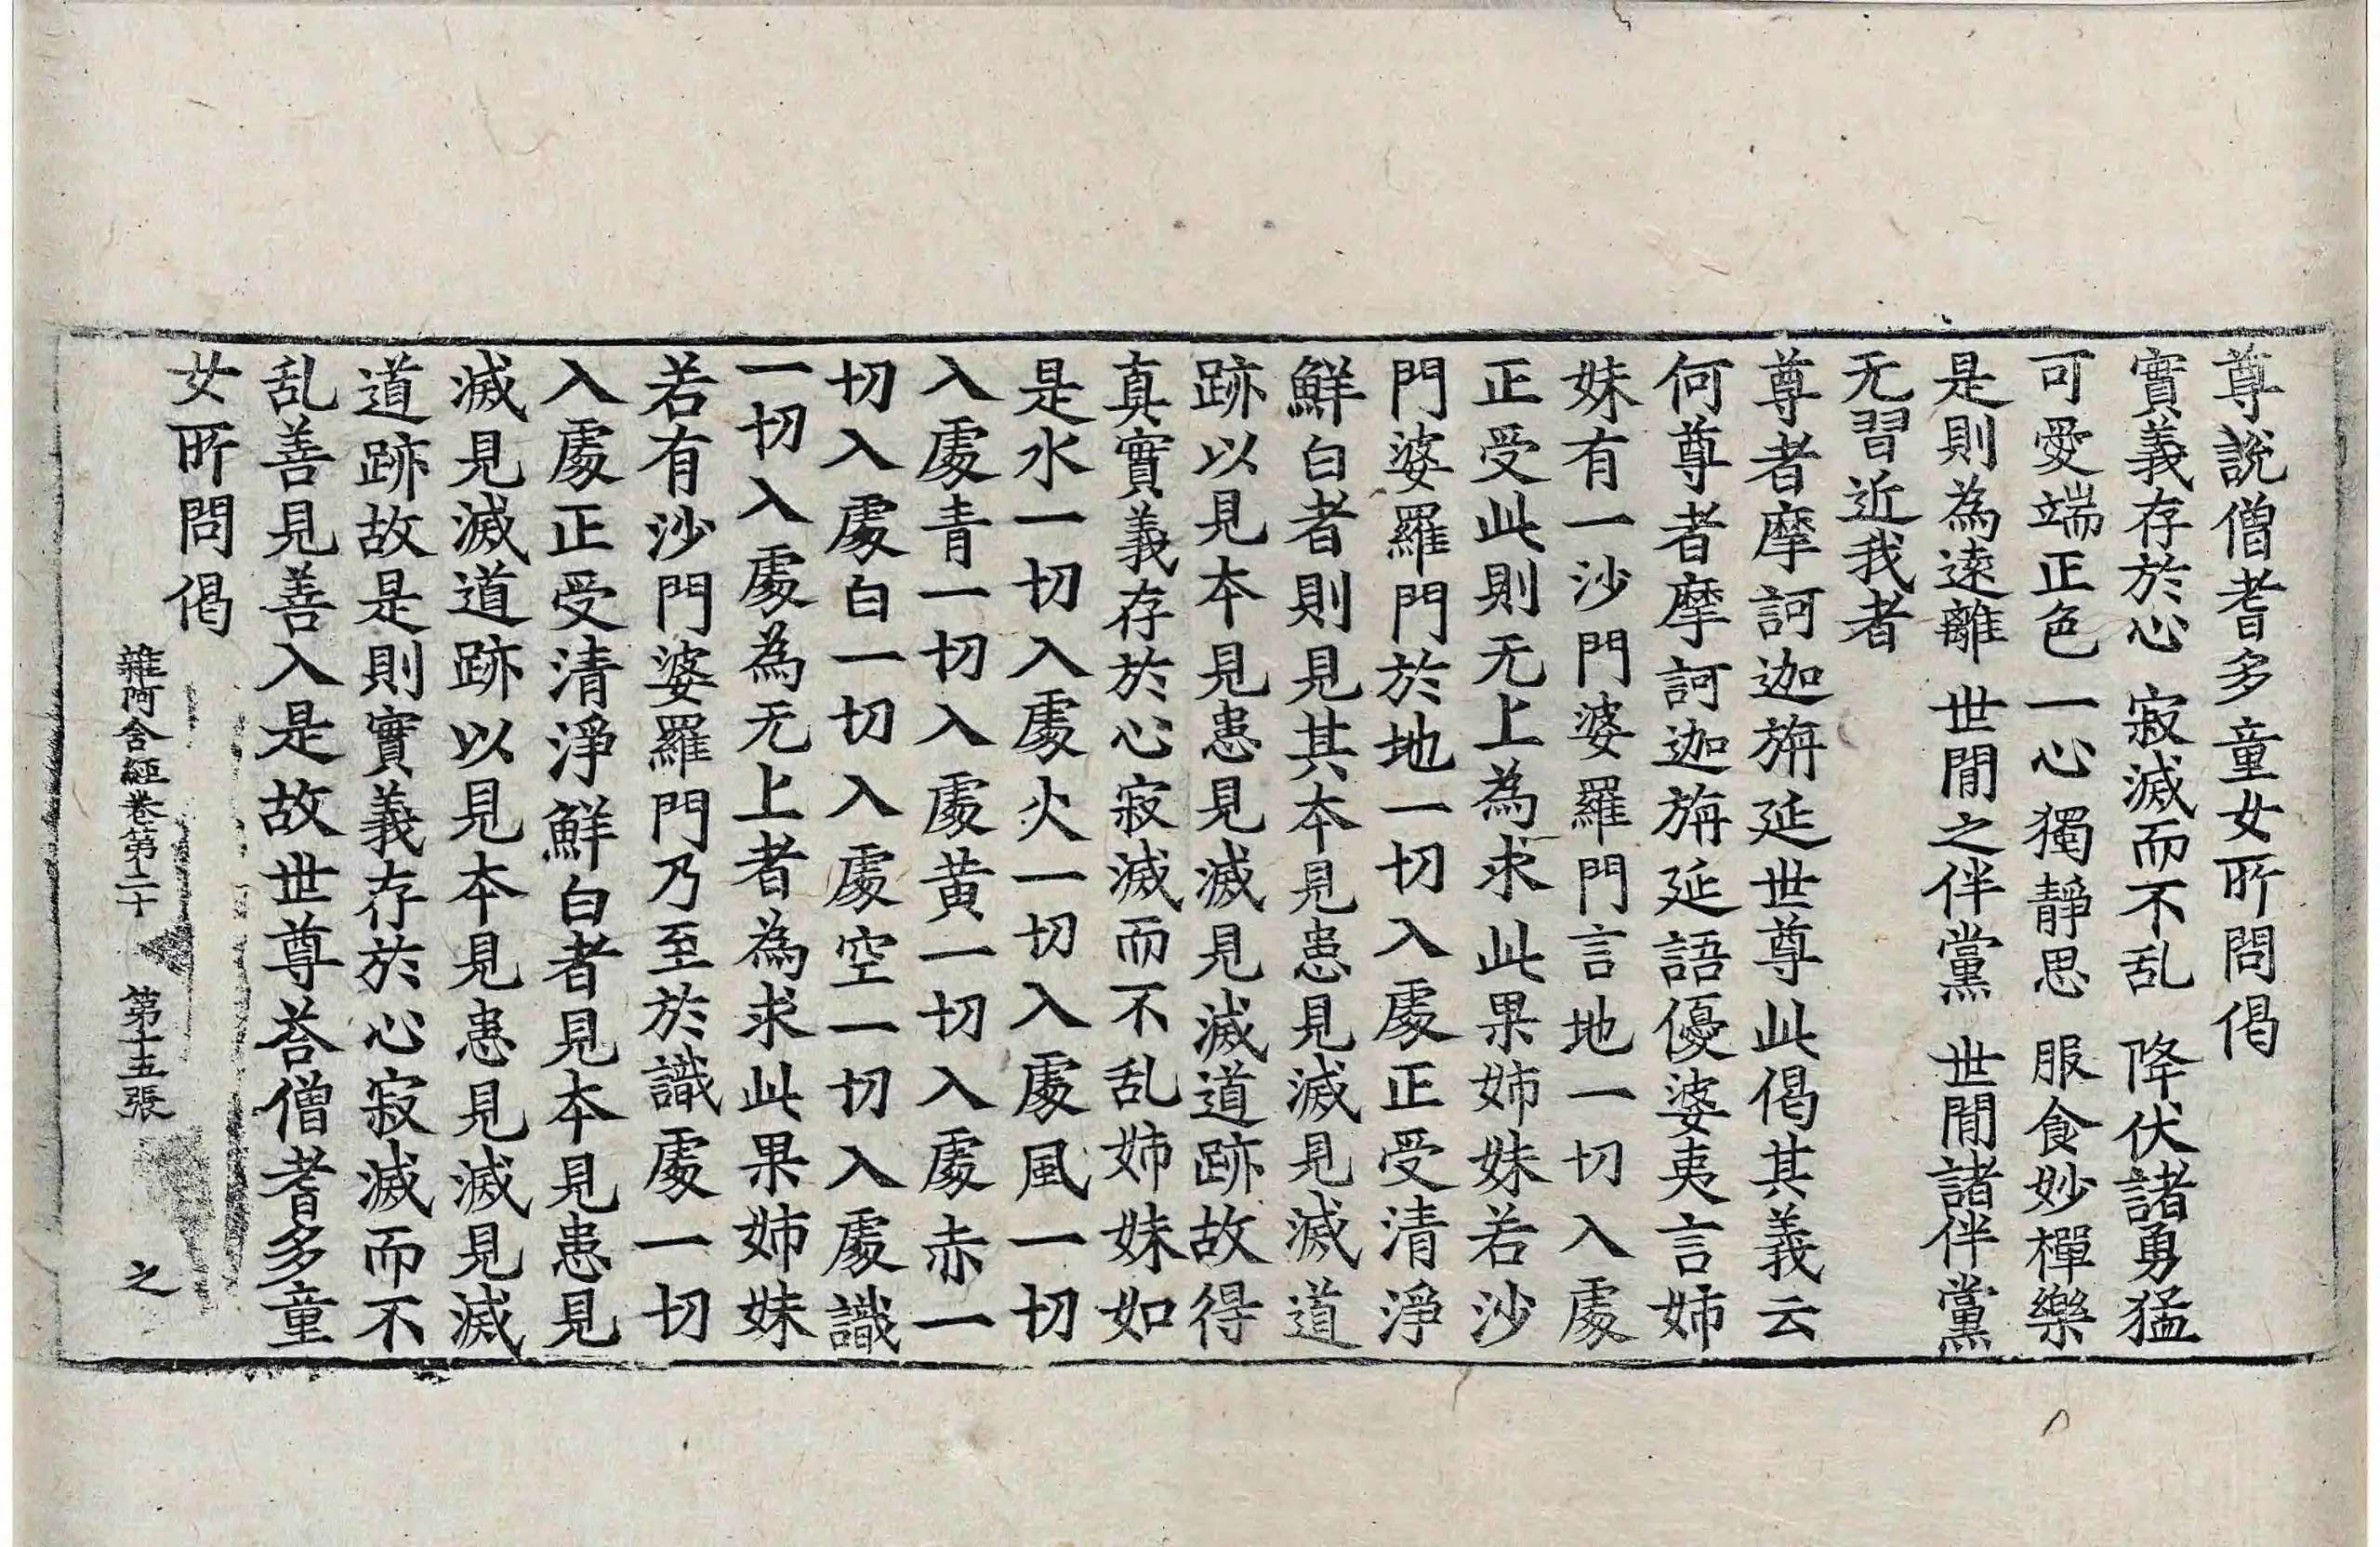 尊說僧耆多童女所問偈
實義存於心 寂滅而不乱 降伏諸勇猛
可愛端正色 一心獨靜思 服食妙樿樂
是則為遠離 世閒之伴黨 世閒諸伴黨
无習近我者
尊者摩訶迦旃延世尊此偈其義云
何尊者摩訶迦旃延語優婆夷言姉
妹有一沙門婆羅門言地一切入處
正受此則无上為求此果姉妹若沙
門婆羅門於地一切入處正受清淨
鮮白者則見其本見患見滅見滅道
跡以見本見患見滅見滅道跡故得
真實義存於心寂滅而不乱姉妹如
是水一切入處火一切入處風一切
入處青一切入處黃一切入處赤一
切入處白一切入處空一切入處識
一切入處為无上者為求此果姉妹
若有沙門婆羅門乃至於識處一切
入處正受清淨鮮白者見本見患見
滅見滅道跡以見本見患見滅見滅
道跡故是則實義存於心寂滅而不
乱善見善入是故世尊荅僧耆多童
女所問偈
雜阿含經卷第二十 第十五張 之